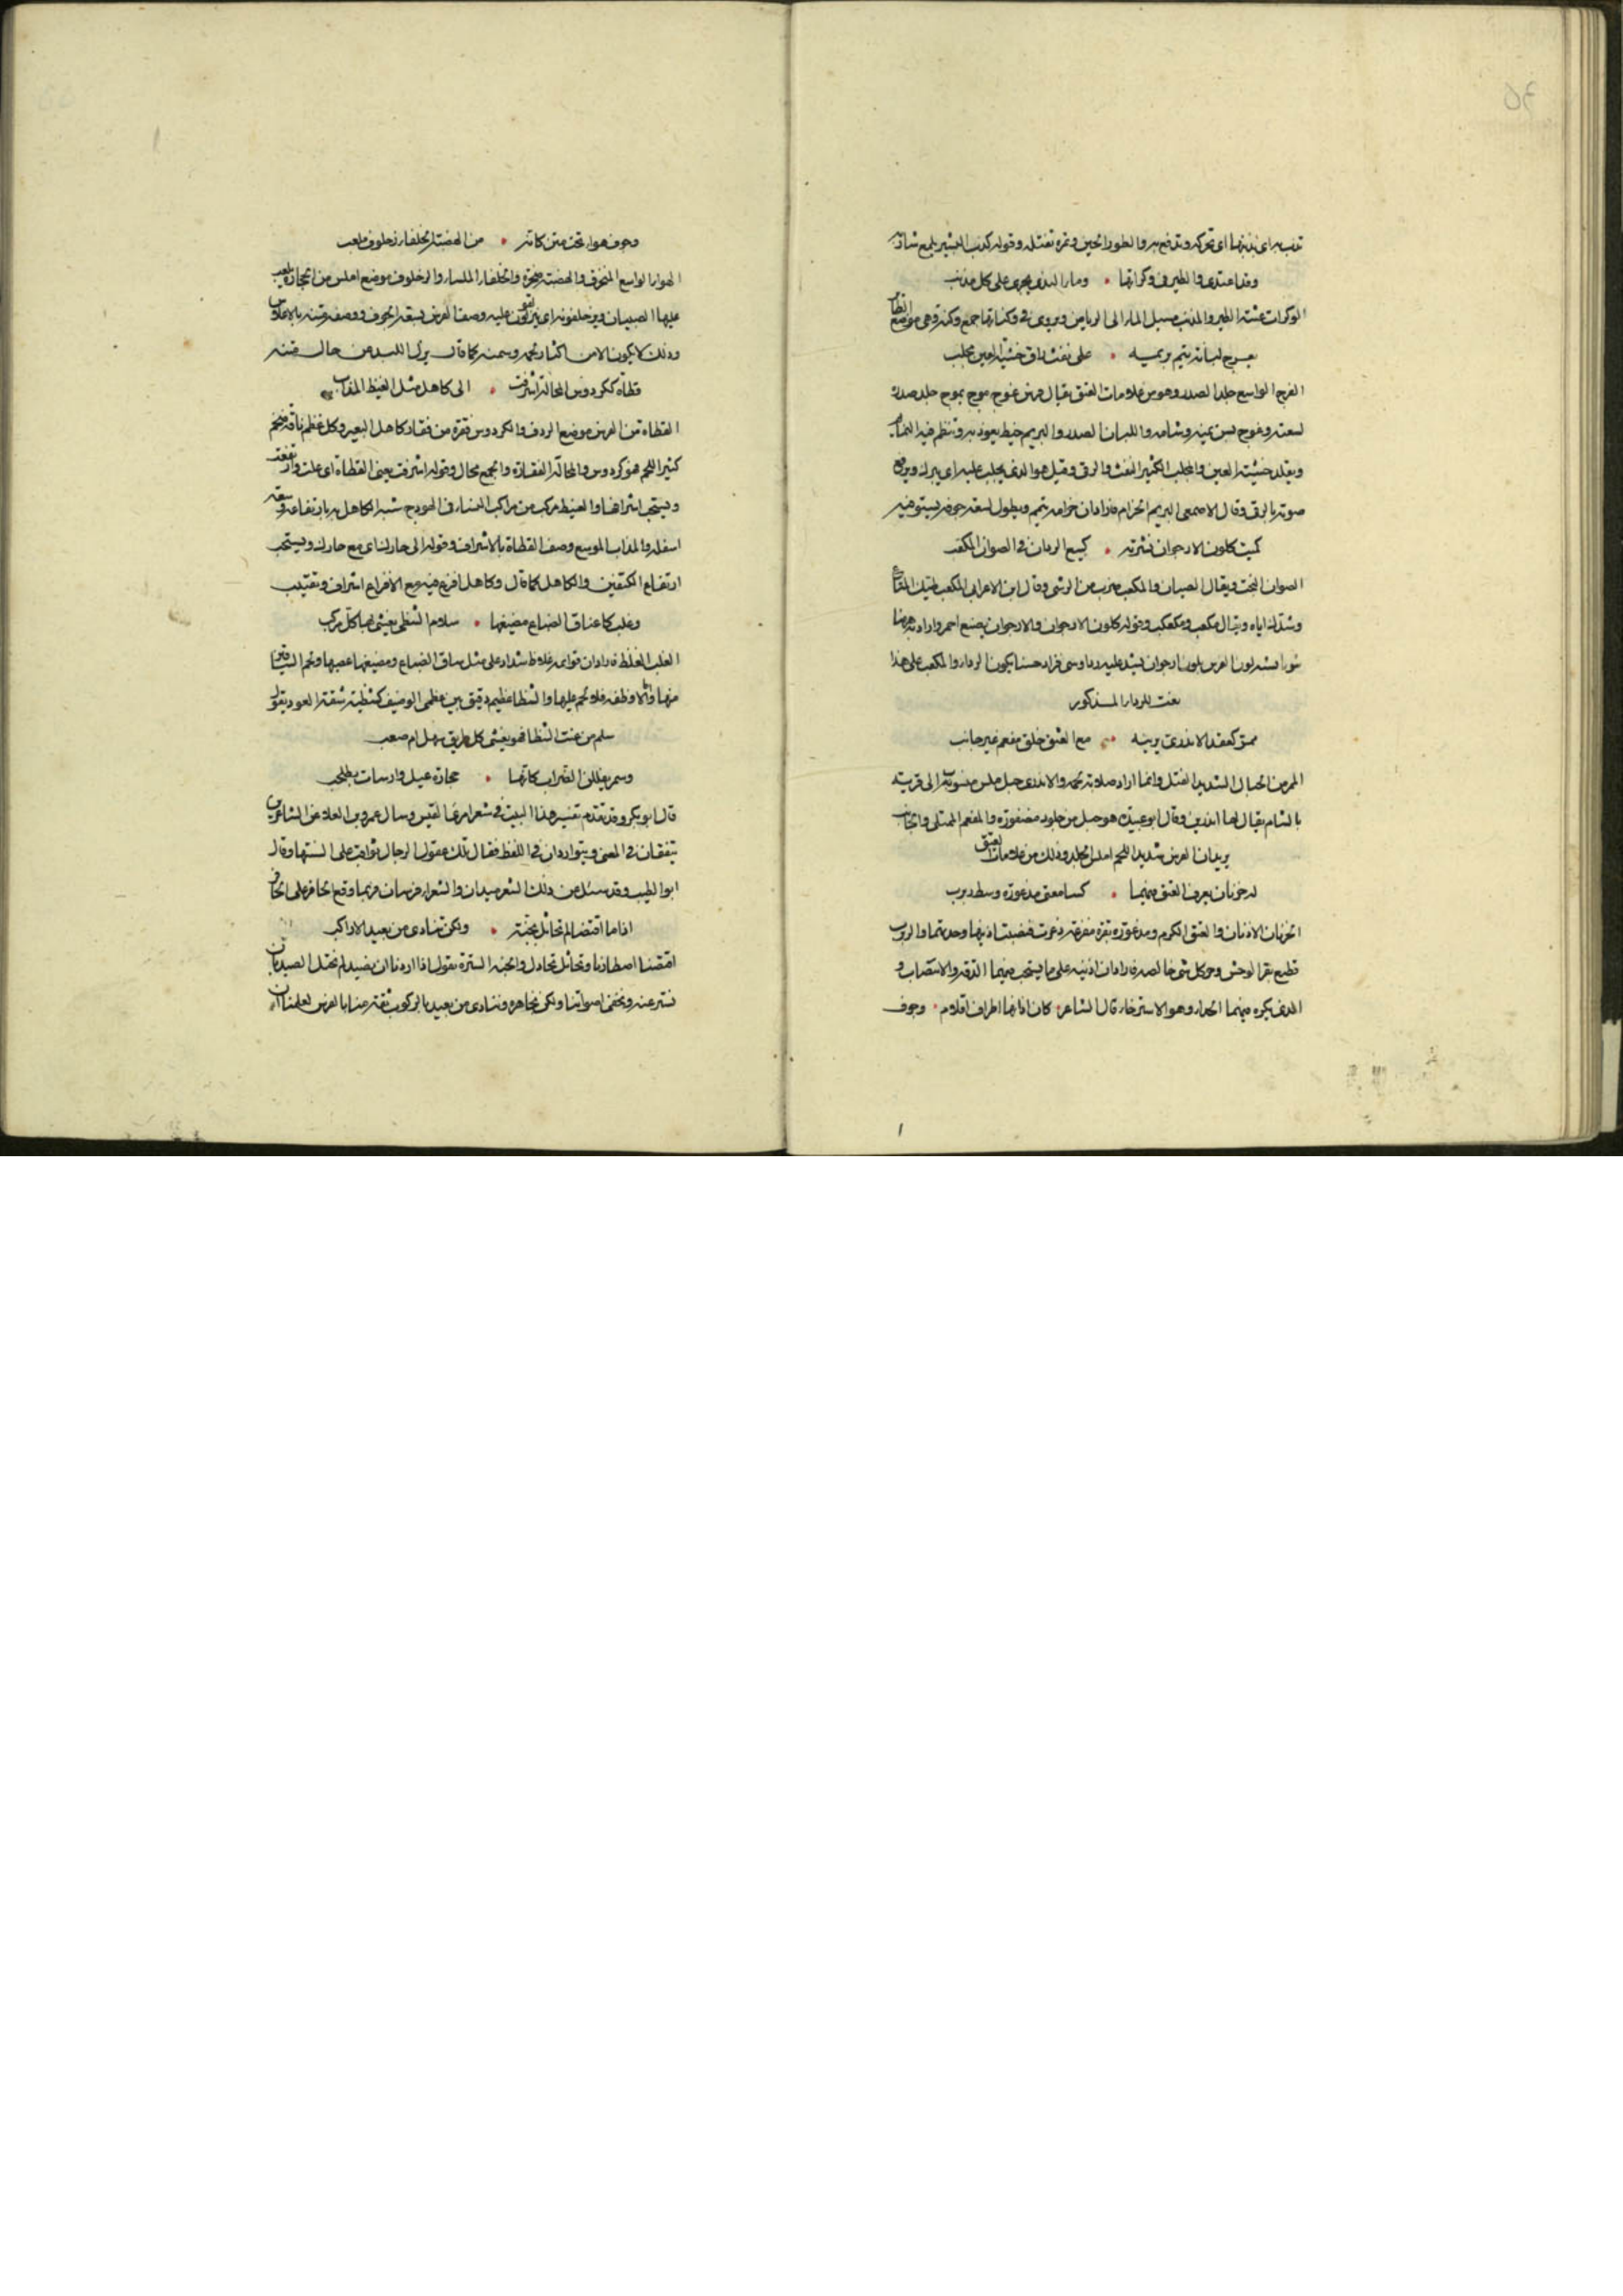 تذب به اى بذنبها اى تحركه وتدفع به والطور الحين ومرة تفتله وقوله كذب البشير يلمع بثيابه
وقد اغتدى والطير فى وكراتها • وماء الندى يجرى على كل مذنب
الوكرات عششة الطير والمذنب مسيل الماء الى الرياض ويروى فى وكناتها جمع وكنة وهى موضع الطائر
على نفث راق خشية العين مجلب
الواسع جلد الصدر وهو من علامات العتق يقال فرس غوج موج يموج جلد صدره
لسعته وغوج لين يمينه وشماله واللبان الصدر والبريم خيط يعوذ به وتنظم فيه التمائم
ويقلد خشية العين والمجلب الكثير النفث والرقى وقيل هو الذى يجلب عليه اى يبرك ويرفع
صوته بالرقى وقال الاصمعى البريم الحزام فاراد ان حزامه يتم ويطول لسعة جوفه
كميت كلون الارجوان نشرته • لبيع الرداء فى الصوان المكعب
الصوان التخت ويقال الصيان والمكعب ضرب من الوشى وقال ابن الاعرابى المكعب طيك المتاع
وشدك اياه ويقال مكعب وقوله كلون الارجوان والارجوان صبغ احمر واراد به هنا
ثوبا فشبه لون الفرس بلون ارجوان وشى فزاد حسنا يكون الرداء والمكعب على هذا
نعت للرداء المذكور
ممر كعقد الاندرى يزينه • مع العتق خلق مفعم غير جانب
الممر من الحبال الشديد الفتل وانما اراد صلابة لحمه والاندرى حبل منسوب الى قرية
بالشام يقال لها اندرين وقال ابو عبيدة هو حبل من جلود مضفورة والمفعم الممتلى والجانب
يريد ان الفرس شديد اللحم املس الجلد وذلك من علامات العتق
له حرتان يعرف العتق فيهما • كسامعتى مذعورة وسط ربرب
الحرتان الاذنان والعتق الكرم ومذعورة بقرة مفزعة ذعرت فنصبت اذنيها وحددتهما والربرب
قطيع بقر الوحش وحر كل شى خالصه فاراد ان اذنيه على ما يستحب فيهما الدقة والانتصاب و
الذى يكره فيهما وهو الاسترخاء قال الشاعر • كان اذانها اطراف اقلام • وجوف
وجوف هواء تحت متن كانه • من الهضبة الخلقاء زحلوف ملعب
الهواء الواسع المنخرق والهضبة صخرة والخلقاء الملساء والزحلوف موضع املس من الحجارة يلعب
عليها الصبيان ويزحلفونه اى ينزلقون عليه وصف الفرس بسعة الجوف ووصف متنه بالاملاس
وذلك لا يكون الا من اكتناز لحمه وسمنه كما قال يزل اللبد من حال متنه
قطاة ككردوس المحالة اشرفت • الى كاهل مثل الغبيط المذأب
القطاة من الفرس موضع الردف والكردوس فقرة من فقار كاهل البعير وكل عظم ناقة ضخم
كثير اللحم فهو كردوس والمحالة الفقارة والجمع محال وقوله اشرفت يعنى القطاة اى علت وارتفعت
ويستحب اشرافها والغبيط مركب من مراكب النساء فى الهودج شبه الكاهل به بارتفاعه وسعة
اسفله والمذأب الموسع وصف القطاة بالاشراف وقوله الى حارك اى مع حارك ويستحب
ارتفاع الكتفين والكاهل كما قال وكاهل افرع فيه مع الافراع اشراف وتقبيب
وغلب كاعناق الضباع مضيغها • سلام الشظى يغشى بها كل مركب
الغلب الغلاظ فاراد ان قوائمه غلاظ شداد على مثل ساق الضباع ومضيغها عصبها ولحم الساقين
منها والاوظفه فلا لحم عليها والشظا عظيم دقيق بين عظمى الوظيف كشظية شقة العود يقول
سلم من عنت الشظا فهو يغشى كل طريق سهل ام صعب
وسمر يفلقن الظراب كانها • حجارة غيل وارسات بطحلب
قال ابو بكر وقد تقدم تفسير هذا البيت فى شعر امرئ القيس وسال عمرو بن العلاء عن الشاعرين
يتفقان فى المعنى ويتواردان فى اللفظ فقال تلك عقول الرجال توافت على السنتها وقال
ابو الطيب وقد سئل عن ذلك الشعر ميدان والشعراء فرسان فربما وقع الحافر على الحافر
اذا ما اقتنصنا لم نخاتل بجنة • ولكن ننادى من بعيد الا اركب
اقتنصنا اصطدنا ونخاتل نخادل والجنة السترة يقول اذا اردنا ان نصيد لم نختل الصيد بان
نستر عنه ونخفى اصواتنا ولكن نجاهره وننادى من بعيد بالركوب ثقة منا بالفرس لعلمنا ان